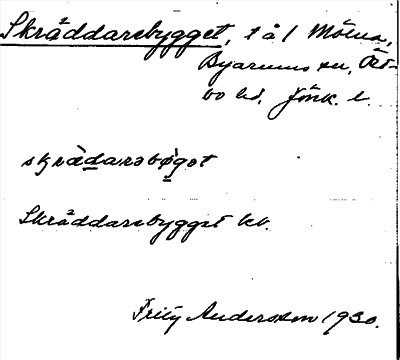 Skräddarebygget, t å l Mörna,
Byarums sn, Öst-
bo hd. Jönk. l.
skrädarebøget
Skräddarebygget kb.
Fritz Andersson 1930.